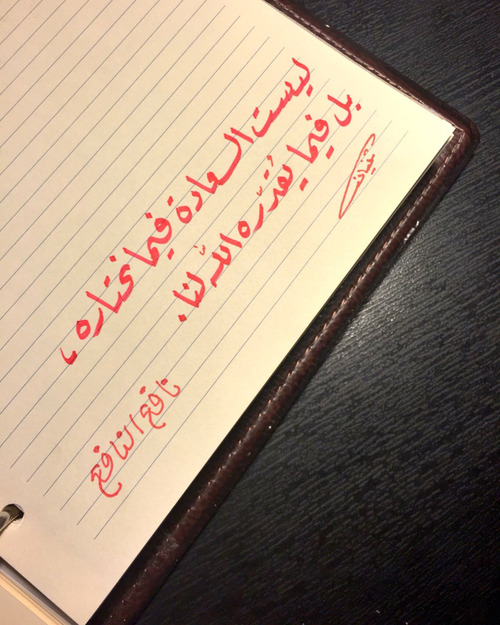 ليست السعادة فيما نختاره،
بل فيما يُقدّره الله لنا.
نافع النافع